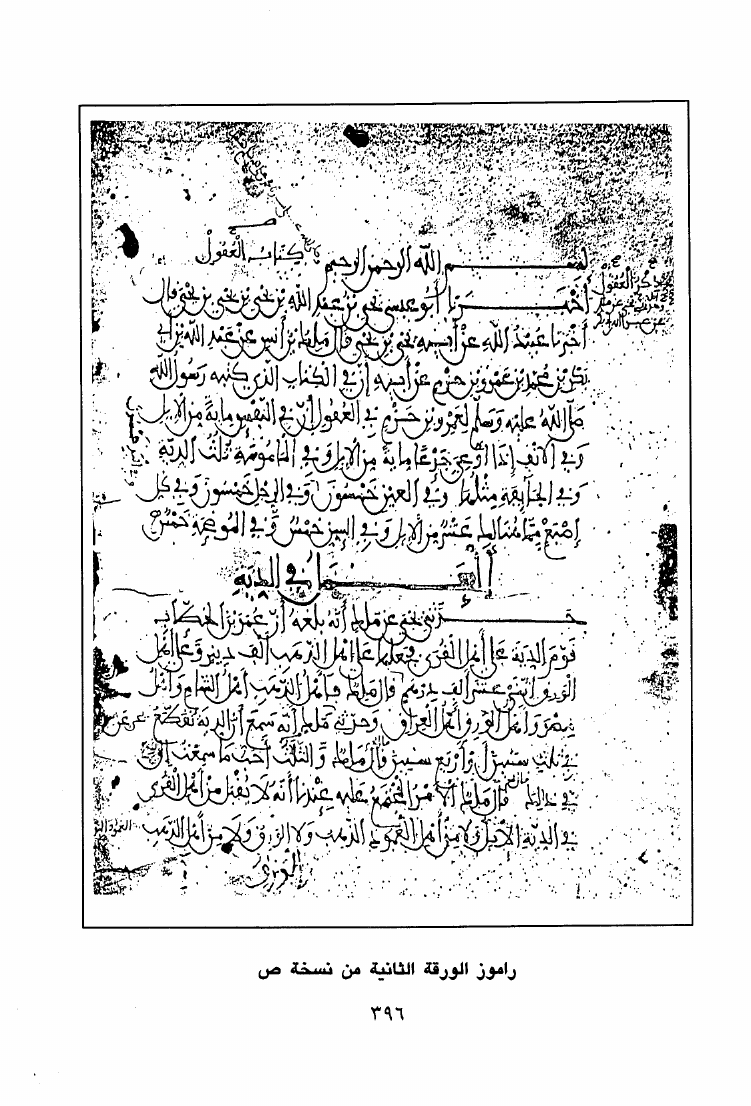 كتاب العقول
بسم الله الرحمن الرحيم
ذكر العقول
أخبرنا أبو عيسى يحيى بن عبد الله بن يحيى بن يحيى بن يحيى قال
أخبرنا عبيد الله عن أبيه يحيى بن يحيى قال مالك بن أنس عن عبد الله بن أبي
بكر بن محمد بن عمرو بن حزم عن أبيه أن في الكتاب الذي كتبه رسول الله
صلى الله عليه وسلم لعمرو بن حزم في العقول أن في النفس ماية من الإبل
وفي الأنف إذا أوعي جدعا ماية من الإبل وفي المأمومة ثلث الدية
وفي الجايفة مثلها وفي العين خمسون وفي الرجل خمسون وفي كل
إصبع مما هنالك عشر من الإبل وفي السن خمس وفي الموضحة خمس
في الدية
حدثني يحيى عن ملك أنه بلغه أن عمر بن الخطاب
قوم الدية على أهل القرى فجعلها على أهل الذهب ألف دينر وعلى أهل
الورق اثني عشر ألف درهم قال ملك فأهل الذهب أهل الشام وأهل
مصر وأهل الورق أهل العراق وحدثني ملك أنه سمع أن الدية تقطع
في ثلث سنين أو أربع سنين قال ملك والثلث أحب ما سمعت إلي
في ذلك قال ملك الأمر المجتمع عليه عندنا أنه لا يقبل من أهل القرى
في الدية الإبل ولا من أهل العمود الذهب ولا الورق ولا من أهل الذهب
الورق
راموز الورقة الثانية من نسخة ص
٣٩٦